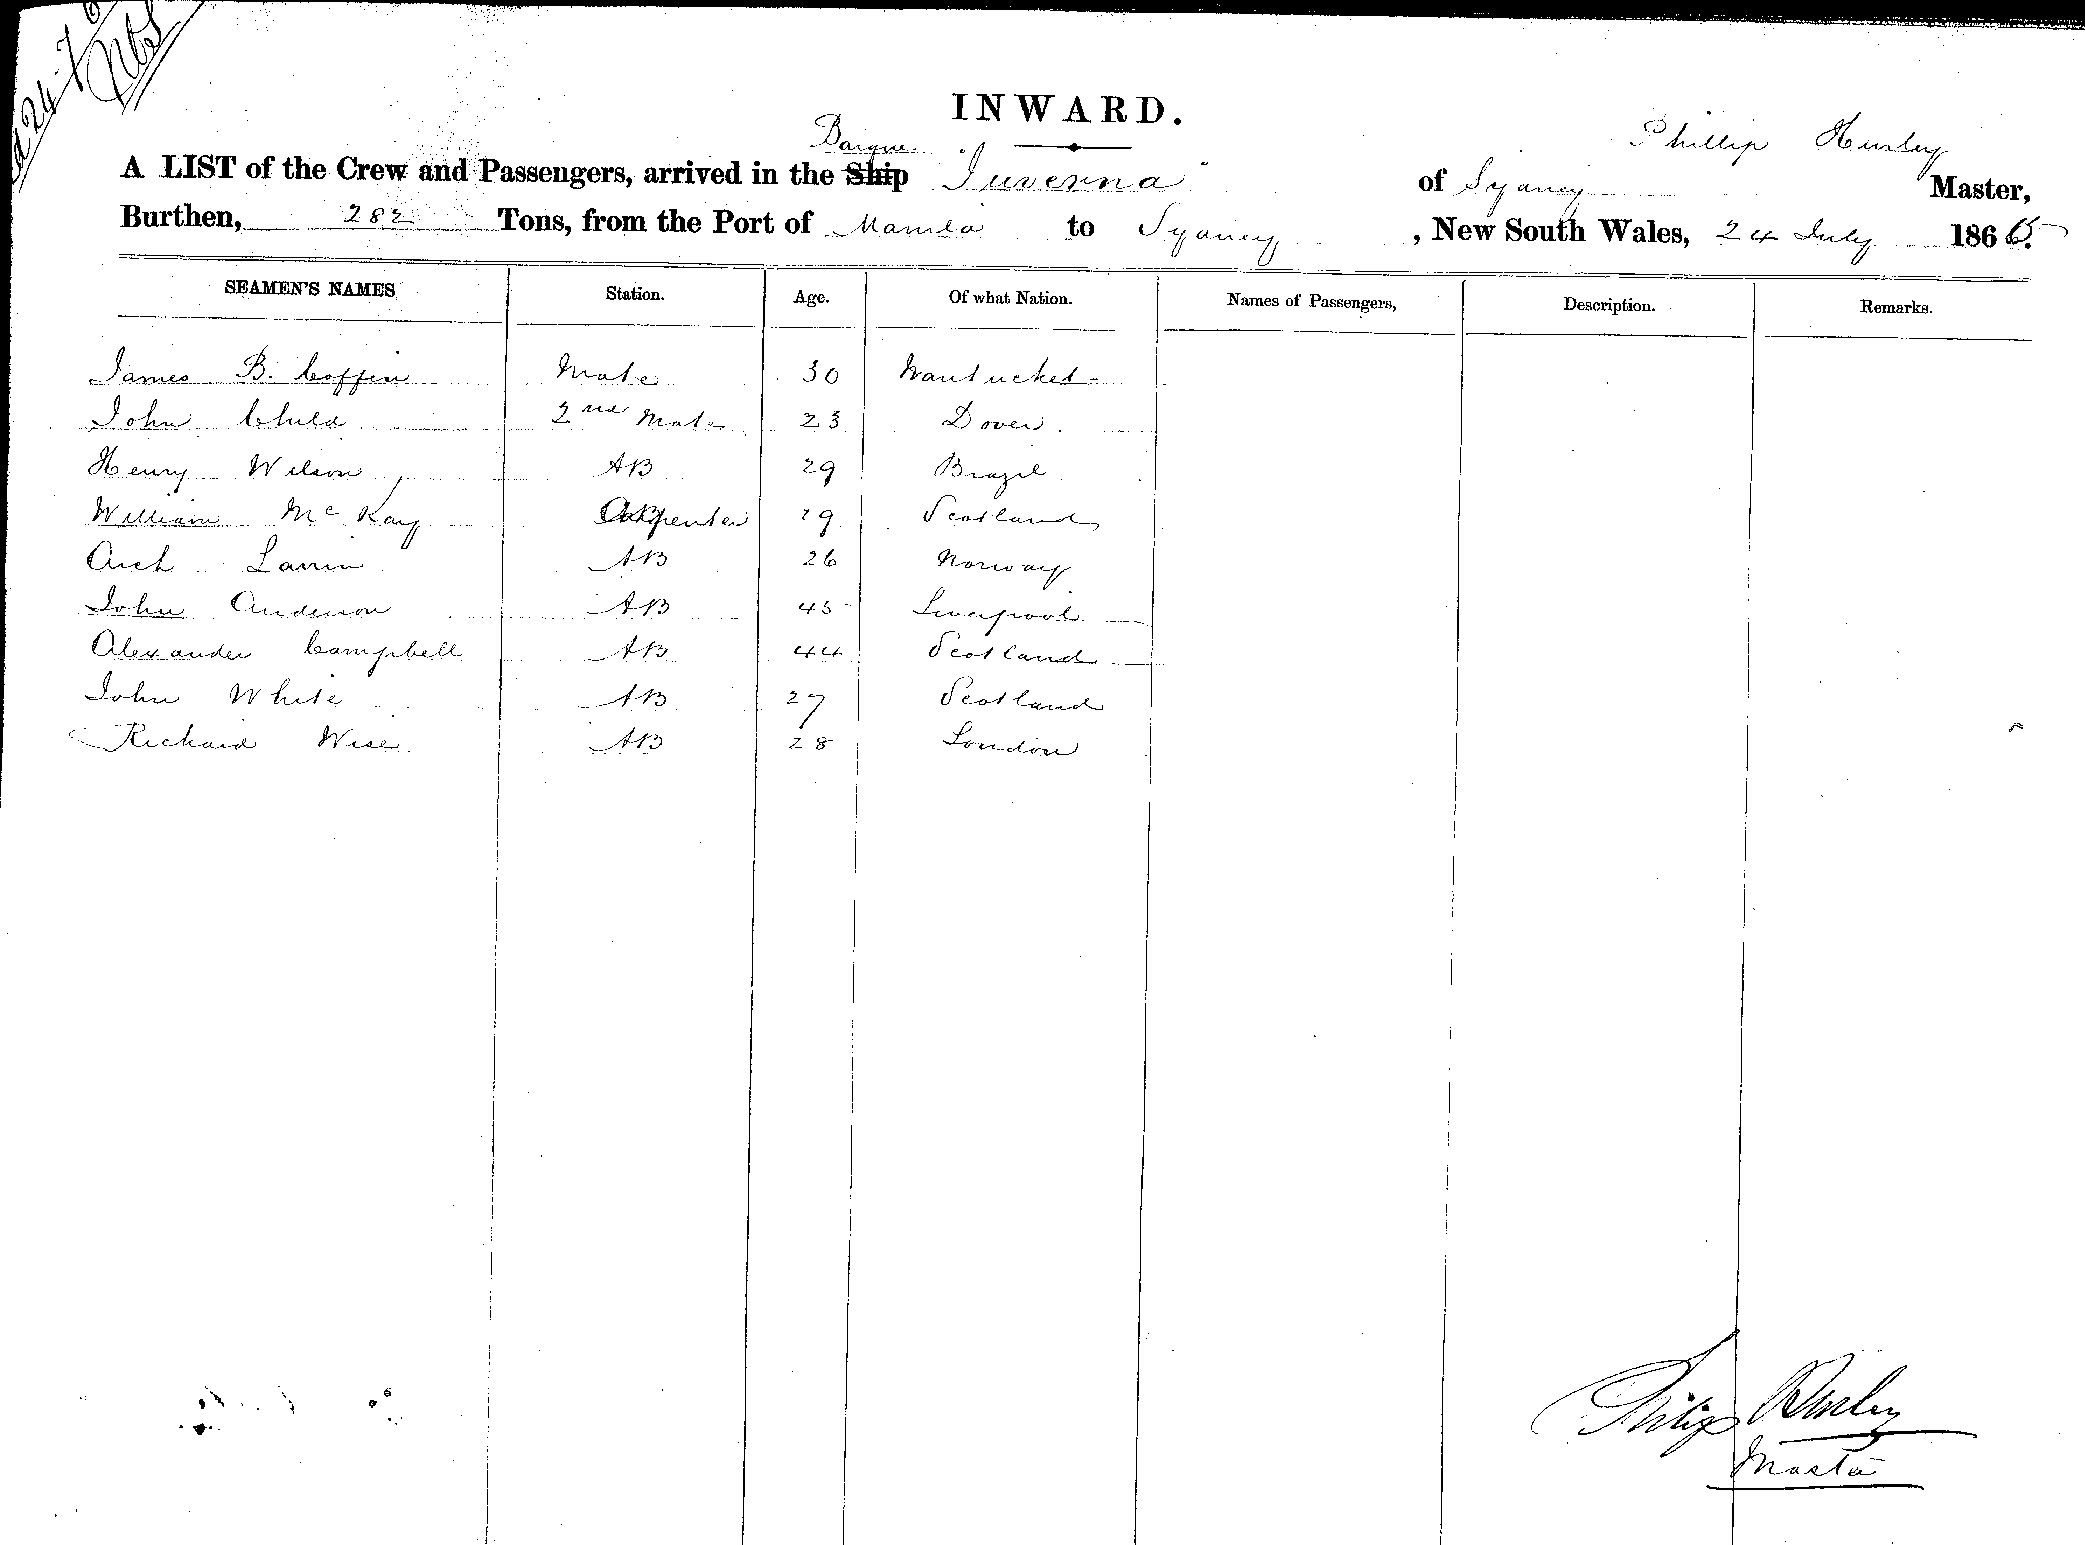 d 24-7
INWARD.
Barque Phillip Hurley
A LIST of the Crew and Passengers, arrived in the Ship "Juverna" of Sydney Master,
Burthen, 282 Tons, from the Port of Manila to Sydney , New South Wales, 24 July 1865.
SEAMEN'S NAMES Station. Age. Of what Nation. Names of Passengers, Description. Remarks.
James B. Coffin Mate 30 Nantucket
John Child 2nd Mate 23 Dover
Henry Wilson AB 29 Brazil
William McKay Carpenter 29 Scotland
Arch AB 26 Norway
John Anderson AB 45 Liverpool
Alexander Campbell AB 44 Scotland
John White AB 27 Scotland
Richard Wise AB 28 London
Philip Hurley
Master